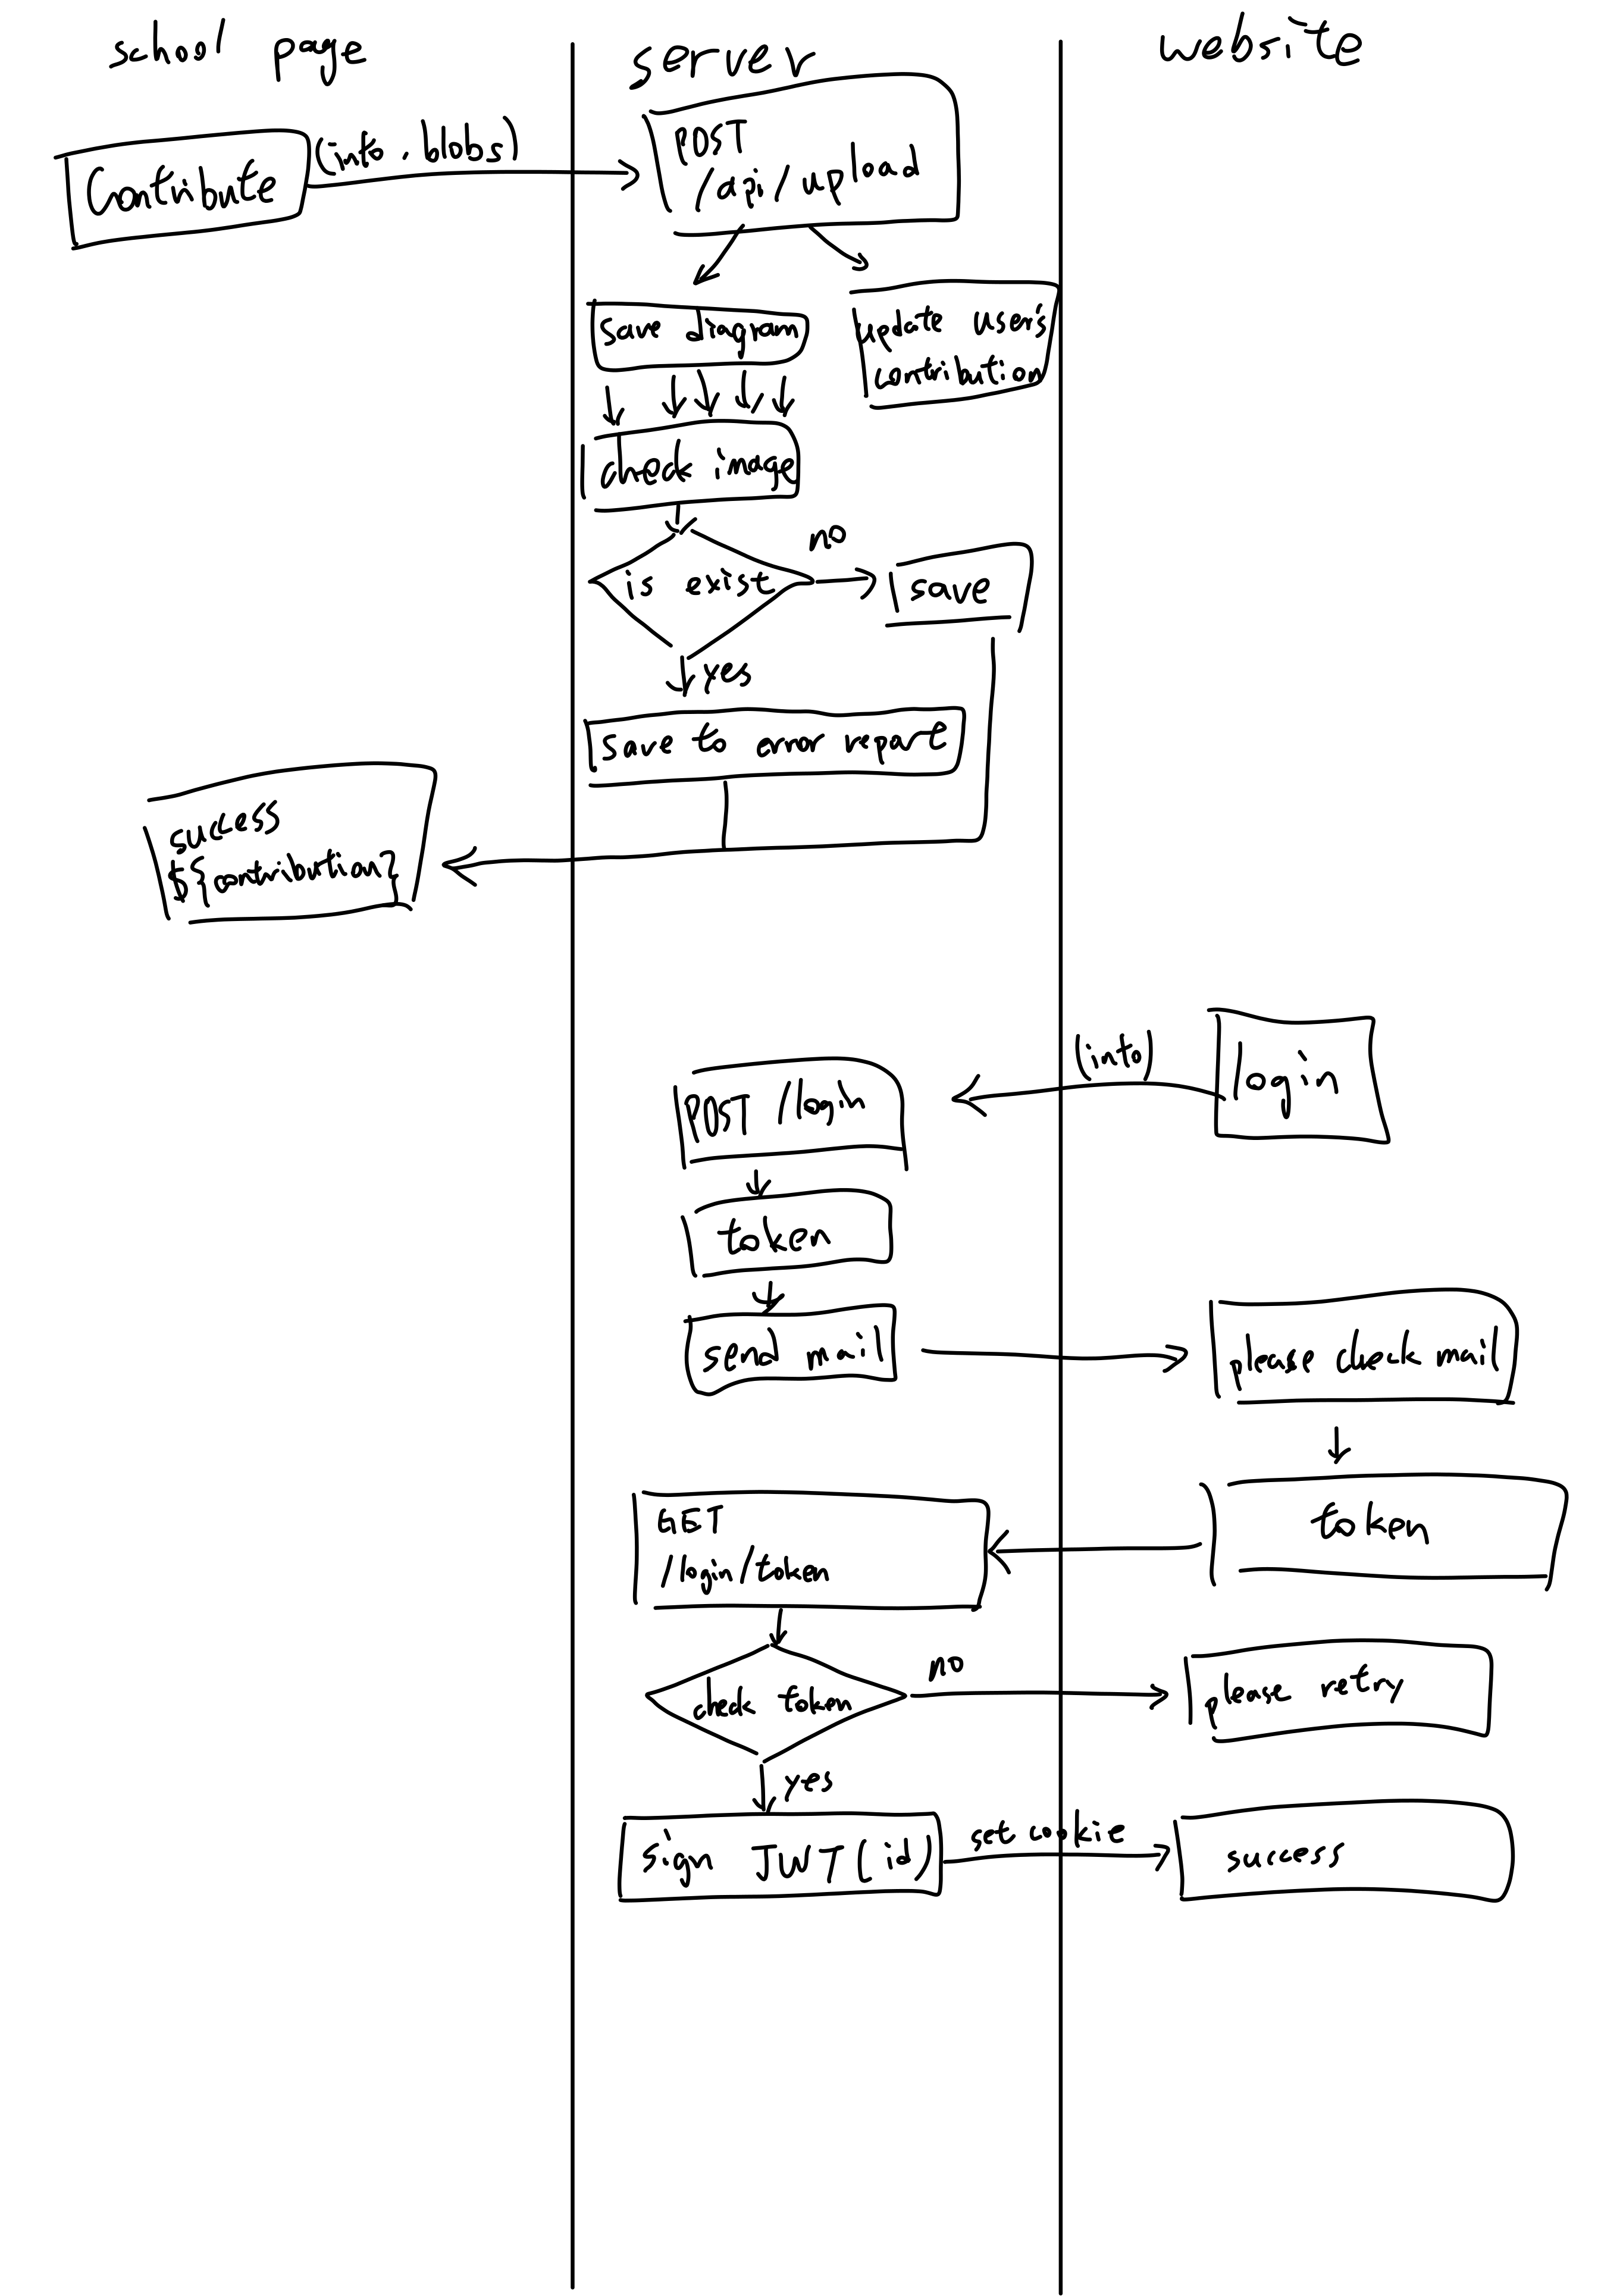 school page
server
website
Contribute
(info, blobs)
POST
/api/upload
save diagram
update user's
contribution
check image
is exist
no
save
yes
save to error report
success
${contribution}
login
(info)
POST /login
token
send mail
please check mail
token
GET
/login/token
check token
no
please retry
yes
sign JWT(id)
set cookie
success